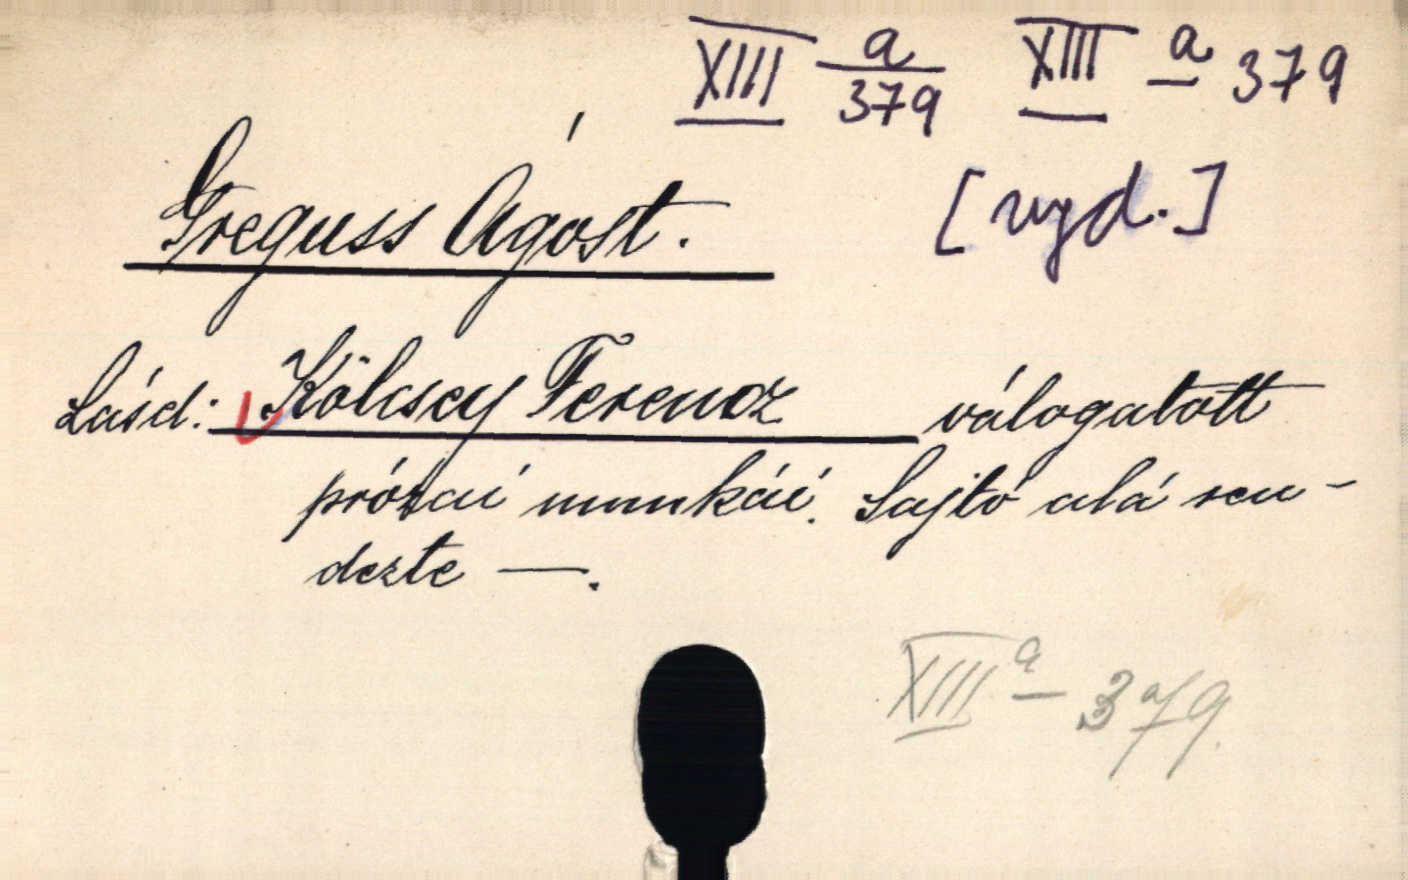 XIII a/379 XIII a 379
Greguss Ágost. [vyd.]
Lásd: Kölcsey Ferencz válogatott
prózai munkái. Sajtó alá ren-
dezte —.
XIII a – 379.